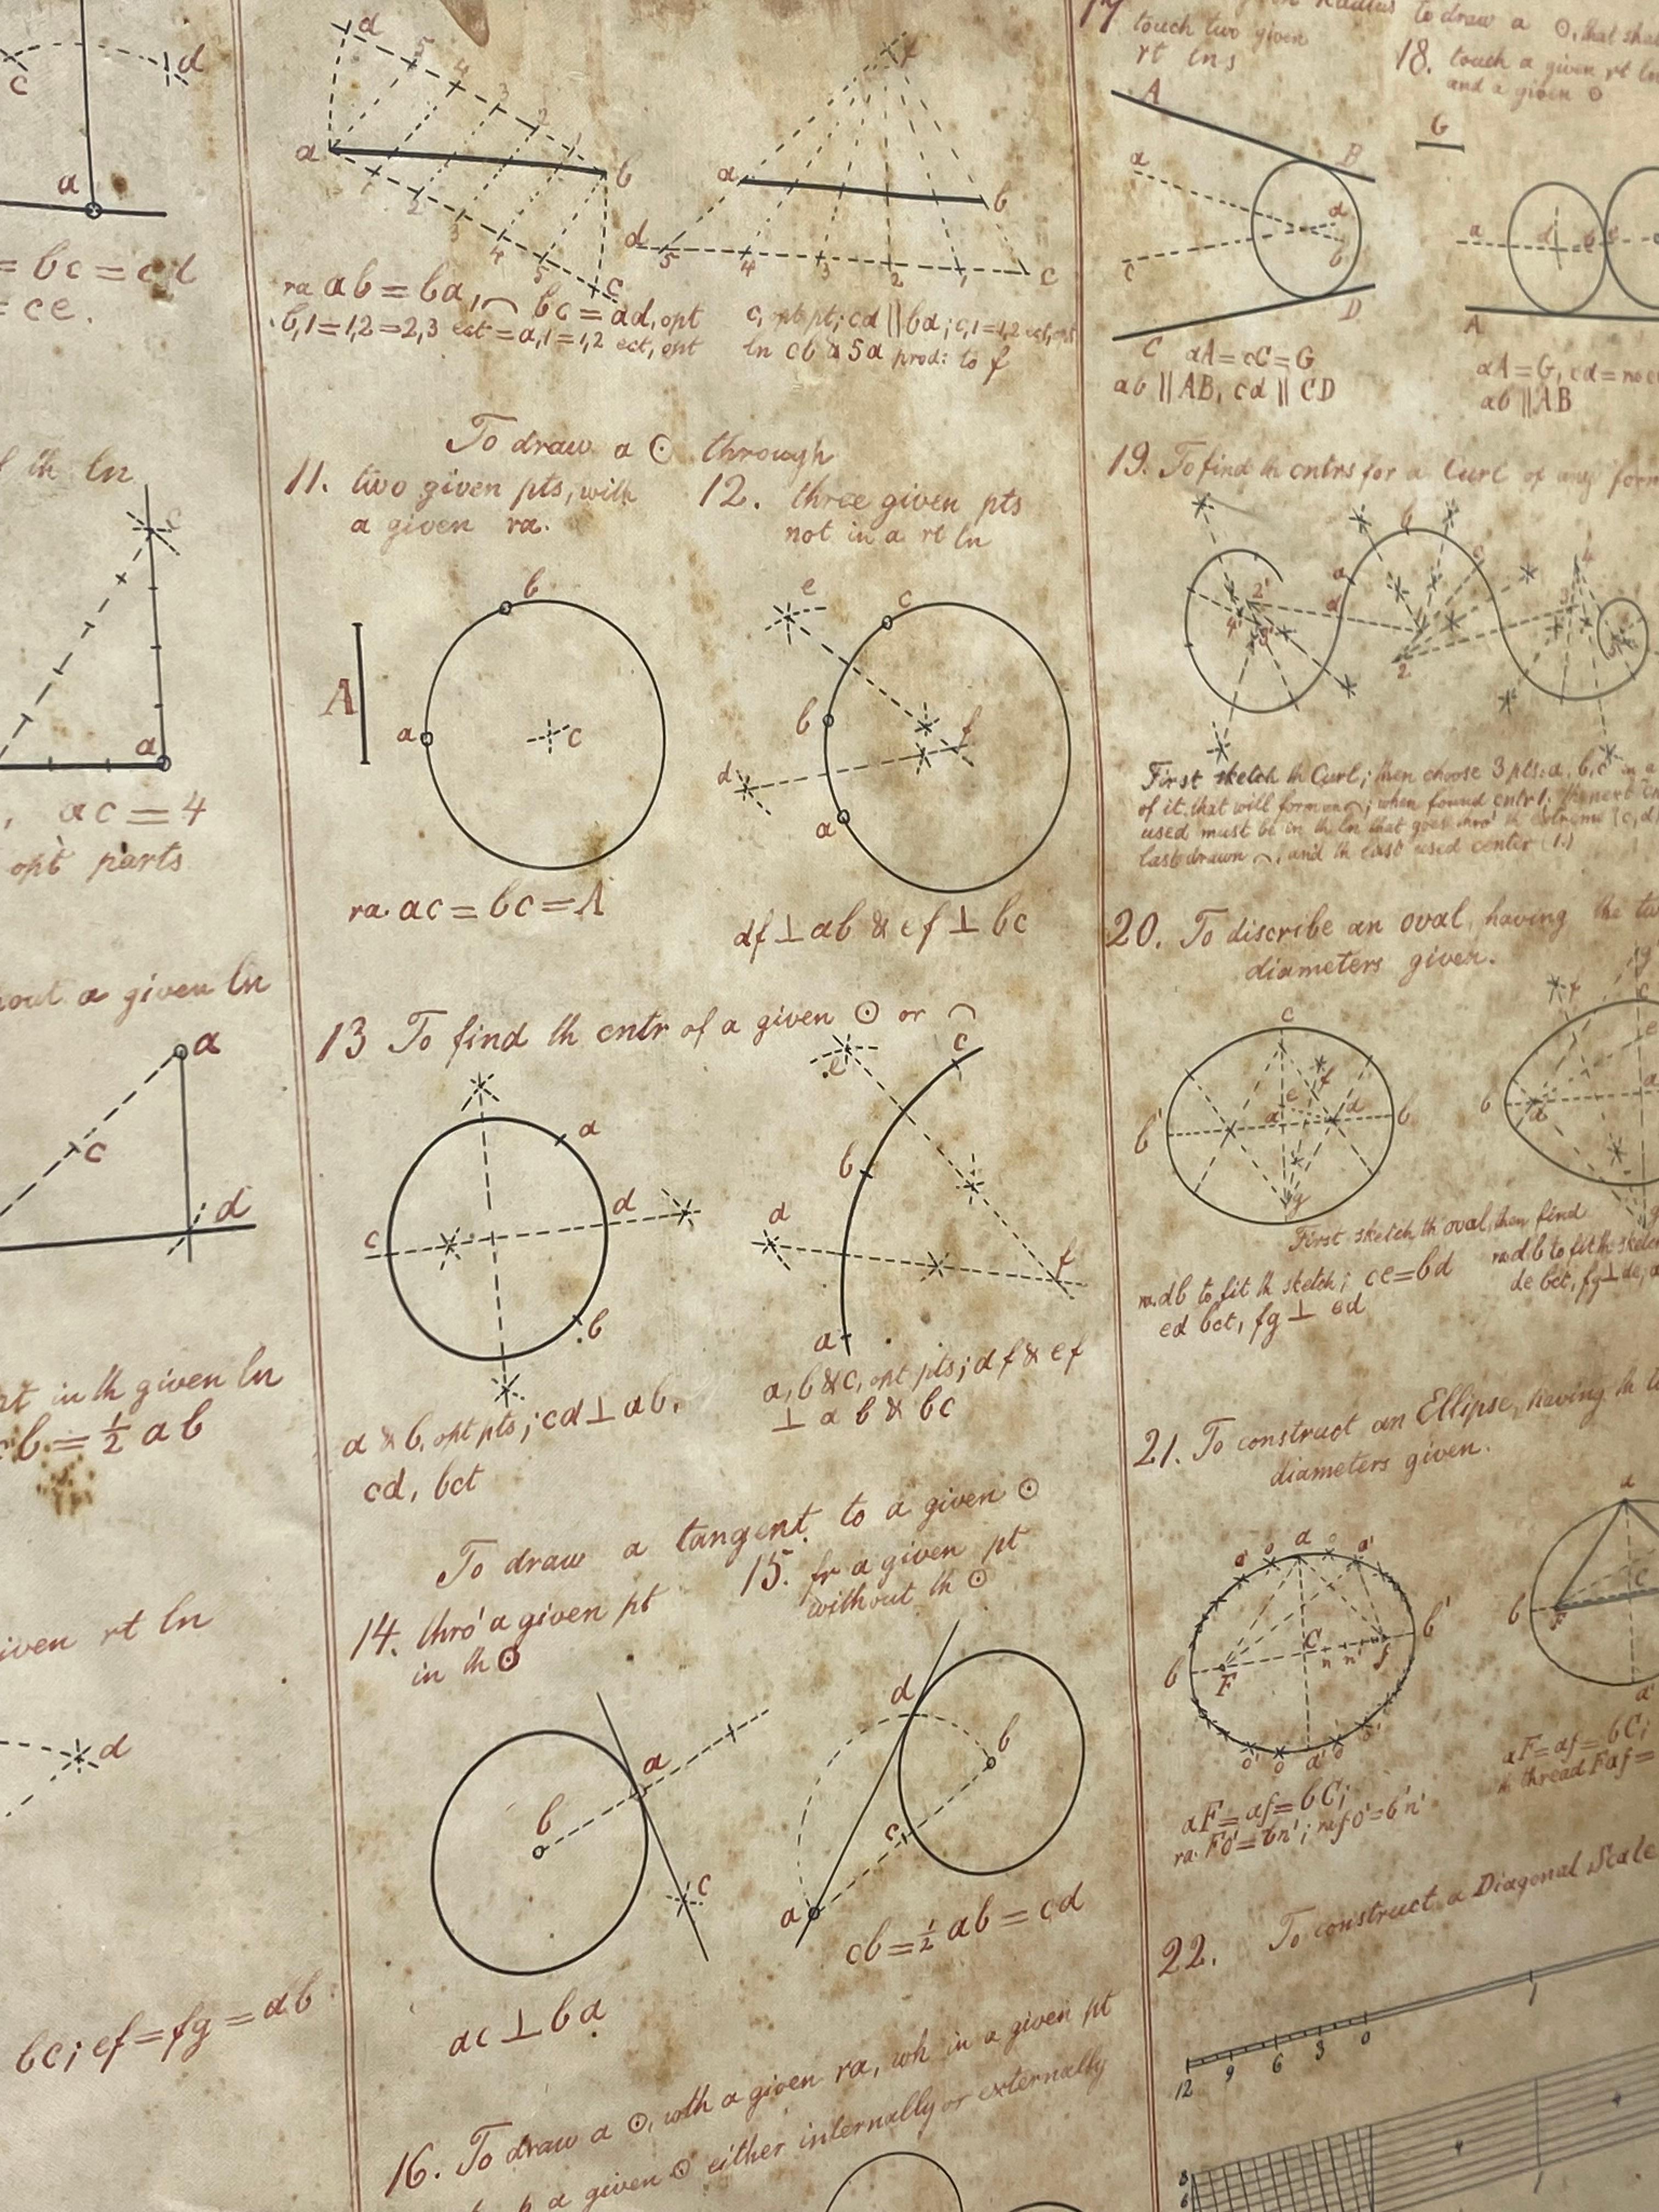 c
d
a
= bc = cd
= ce.
f th ln
c
a
, ac = 4
opt parts
out a given ln
a
c
d
in th given ln
cb = ½ ab
given rt ln
d
bc; ef = fg = ab
d
5
4
3
2
1
a
b
1
2
3
4
5
c
ra ab = ba, ⌒ bc = ad, opt
b,1 = 1,2 = 2,3 ect = a,1 = 1,2 ect, opt
f
a
b
d
5
4
3
2
1
c
c, opt pt; cd || ba; c,1 = 1,2 ect, opt
ln cb & 5a prod: to f
To draw a ⊙ through
11. two given pts, with
a given ra.
A
b
a
c
ra. ac = bc = A
12. three given pts
not in a rt ln
e
c
b
f
d
a
df ⊥ ab & ef ⊥ bc
13 To find th cntr of a given ⊙ or ⌒
a
d
c
b
a & b, opt pts; cd ⊥ ab,
cd, bct
e
c
b
d
f
a
a, b & c, opt pts; df & ef
⊥ ab & bc
To draw a tangent to a given ⊙
14. thro' a given pt
in th ⊙
a
b
c
ac ⊥ ba
15. fr a given pt
without th ⊙
d
b
c
a
cb = ½ ab = cd
16. To draw a ⊙, wth a given ra, wh in a given pt
a given ⊙ either internally or externally
17 radius to draw a ⊙, that shall
touch two given
rt lns
A
a
B
d
b
c
D
C
aA = cC = G
ab || AB, cd || CD
18. touch a given rt ln
and a given ⊙
G
a
d
A
aA = G, cd =
ab || AB
19. To find th cntrs for a Curl of any form
b
a
c
d
2'
4'
3'
2
4
3
First sketch th Curl; then choose 3 pts: a, b, c in a
of it, that will form one ⌒; when found cntr 1; the next
used must be in th ln that goes thro' th extreme (c, d)
last drawn ⌒, and th last used center (1.)
20. To discribe an oval, having the
diameters given.
c
f
e
a
d
b'
b
g
f
g
c
e
b
d
a
First sketch th oval, then find
ra. db to fit th sketch; ce = bd
ed bct, fg ⊥ ed
ra. db to fit th sketch
de bct, fg ⊥ de,
21. To construct an Ellipse, having th
diameters given.
a'
o
a
a'
C
b'
b
F
n
n'
f
o'
o
a'
o
o'
aF = af = bC;
ra. Fo' = bn'; ra fo' = b'n'
a
b
F
C
a'
aF = af = bC;
th thread Faf =
22. To construct a Diagonal Scale
12
9
6
3
0
1
8
6